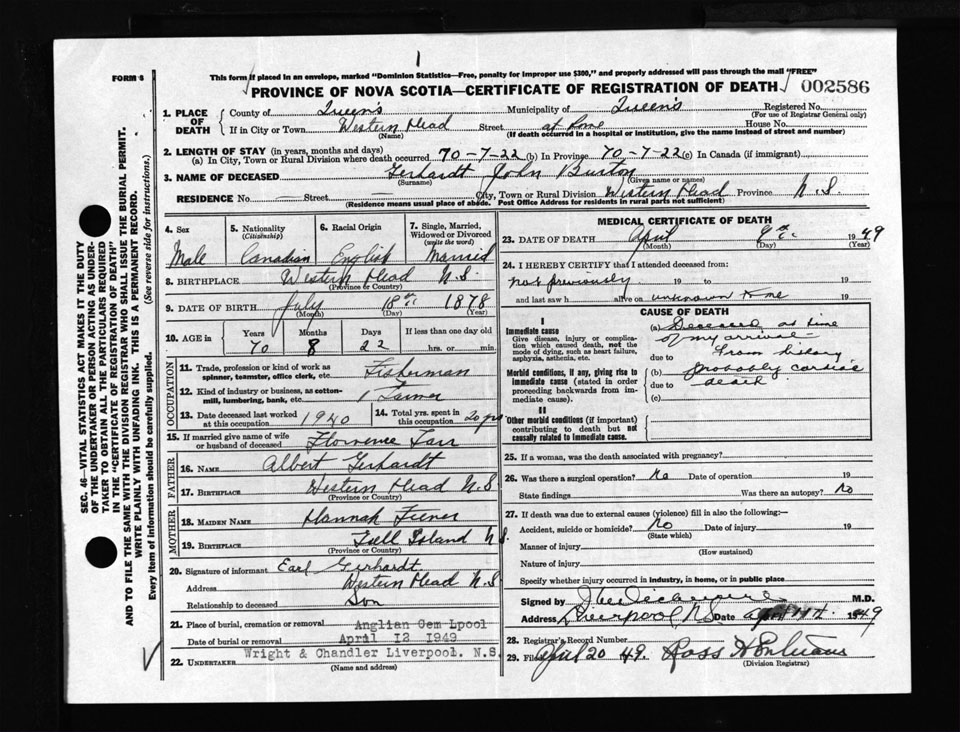 1
FORM 6
This form if placed in an envelope, marked "Dominion Statistics—Free, penalty for improper use $300," and properly addressed will pass through the mail "FREE"
PROVINCE OF NOVA SCOTIA—CERTIFICATE OF REGISTRATION OF DEATH 002586
1. PLACE OF DEATH
County of Queen's Municipality of Queen's Registered No.
(For use of Registrar General only)
If in City or Town Western Head Street at home House No.
(Name) (If death occurred in a hospital or institution, give the name instead of street and number)
2. LENGTH OF STAY (in years, months and days)
(a) In City, Town or Rural Division where death occurred 70-7-22 (b) In Province 70-7-22 (c) In Canada (if immigrant)
3. NAME OF DECEASED Gerhardt John Burton
(Surname) (Given name or names)
RESIDENCE No. — Street — City, Town or Rural Division Western Head Province N.S.
(Residence means usual place of abode. Post Office Address for residents in rural parts not sufficient)
4. Sex
Male
5. Nationality
(Citizenship)
Canadian
6. Racial Origin
English
7. Single, Married, Widowed or Divorced
(write the word)
Married
8. BIRTHPLACE Western Head N.S.
(Province or Country)
9. DATE OF BIRTH July 18th 1878
(Month) (Day) (Year)
10. AGE in Years Months Days If less than one day old
70 8 22 hrs. or min.
OCCUPATION
11. Trade, profession or kind of work as spinner, teamster, office clerk, etc. Fisherman
12. Kind of industry or business, as cotton-mill, lumbering, bank, etc.
13. Date deceased last worked at this occupation 1940
14. Total yrs. spent in this occupation 20 yrs
15. If married give name of wife or husband of deceased Florence
FATHER
16. NAME Albert Gerhardt
17. BIRTHPLACE Western Head N.S.
(Province or Country)
MOTHER
18. MAIDEN NAME Hannah
19. BIRTHPLACE Island N.S.
(Province or Country)
20. Signature of informant Earl Gerhardt
Address Western Head N.S
Relationship to deceased Son
21. Place of burial, cremation or removal Anglian Cem Lpool
Date of burial or removal April 12 1949
22. UNDERTAKER Wright & Chandler Liverpool. N.S.
(Name and address)
MEDICAL CERTIFICATE OF DEATH
23. DATE OF DEATH April 9th 1949
(Month) (Day) (Year)
24. I HEREBY CERTIFY that I attended deceased from:
not previously 19 to 19
and last saw h alive on unknown time 19
CAUSE OF DEATH
I
Immediate cause
Give disease, injury or complication which caused death, not the mode of dying, such as heart failure, asphyxia, asthenia, etc.
Morbid conditions, if any, giving rise to immediate cause (stated in order proceeding backwards from immediate cause).
II
Other morbid conditions (if important) contributing to death but not causally related to immediate cause.
(a) Deceased at time
of my arrival—
due to From history
(b) probably cardiac
due to death
(c)
25. If a woman, was the death associated with pregnancy?
26. Was there a surgical operation? No Date of operation 19
State findings Was there an autopsy? No
27. If death was due to external causes (violence) fill in also the following:—
Accident, suicide or homicide? No Date of injury 19
(State which)
Manner of injury
(How sustained)
Nature of injury
Specify whether injury occurred in industry, in home, or in public place
Signed by M.D.
Address Liverpool N.S. Date April 1949
28. Registrar's Record Number
29. Filed April 20 49. Ross
(Division Registrar)
SEC. 46—VITAL STATISTICS ACT MAKES IT THE DUTY
OF THE UNDERTAKER OR PERSON ACTING AS UNDER-
TAKER TO OBTAIN ALL THE PARTICULARS REQUIRED
IN THE "CERTIFICATE OF REGISTRATION OF DEATH"
AND TO FILE THE SAME WITH THE DIVISION REGISTRAR WHO SHALL ISSUE THE BURIAL PERMIT.
WRITE PLAINLY WITH UNFADING INK. THIS IS A PERMANENT RECORD.
Every item of information should be carefully supplied. (See reverse side for instructions.)